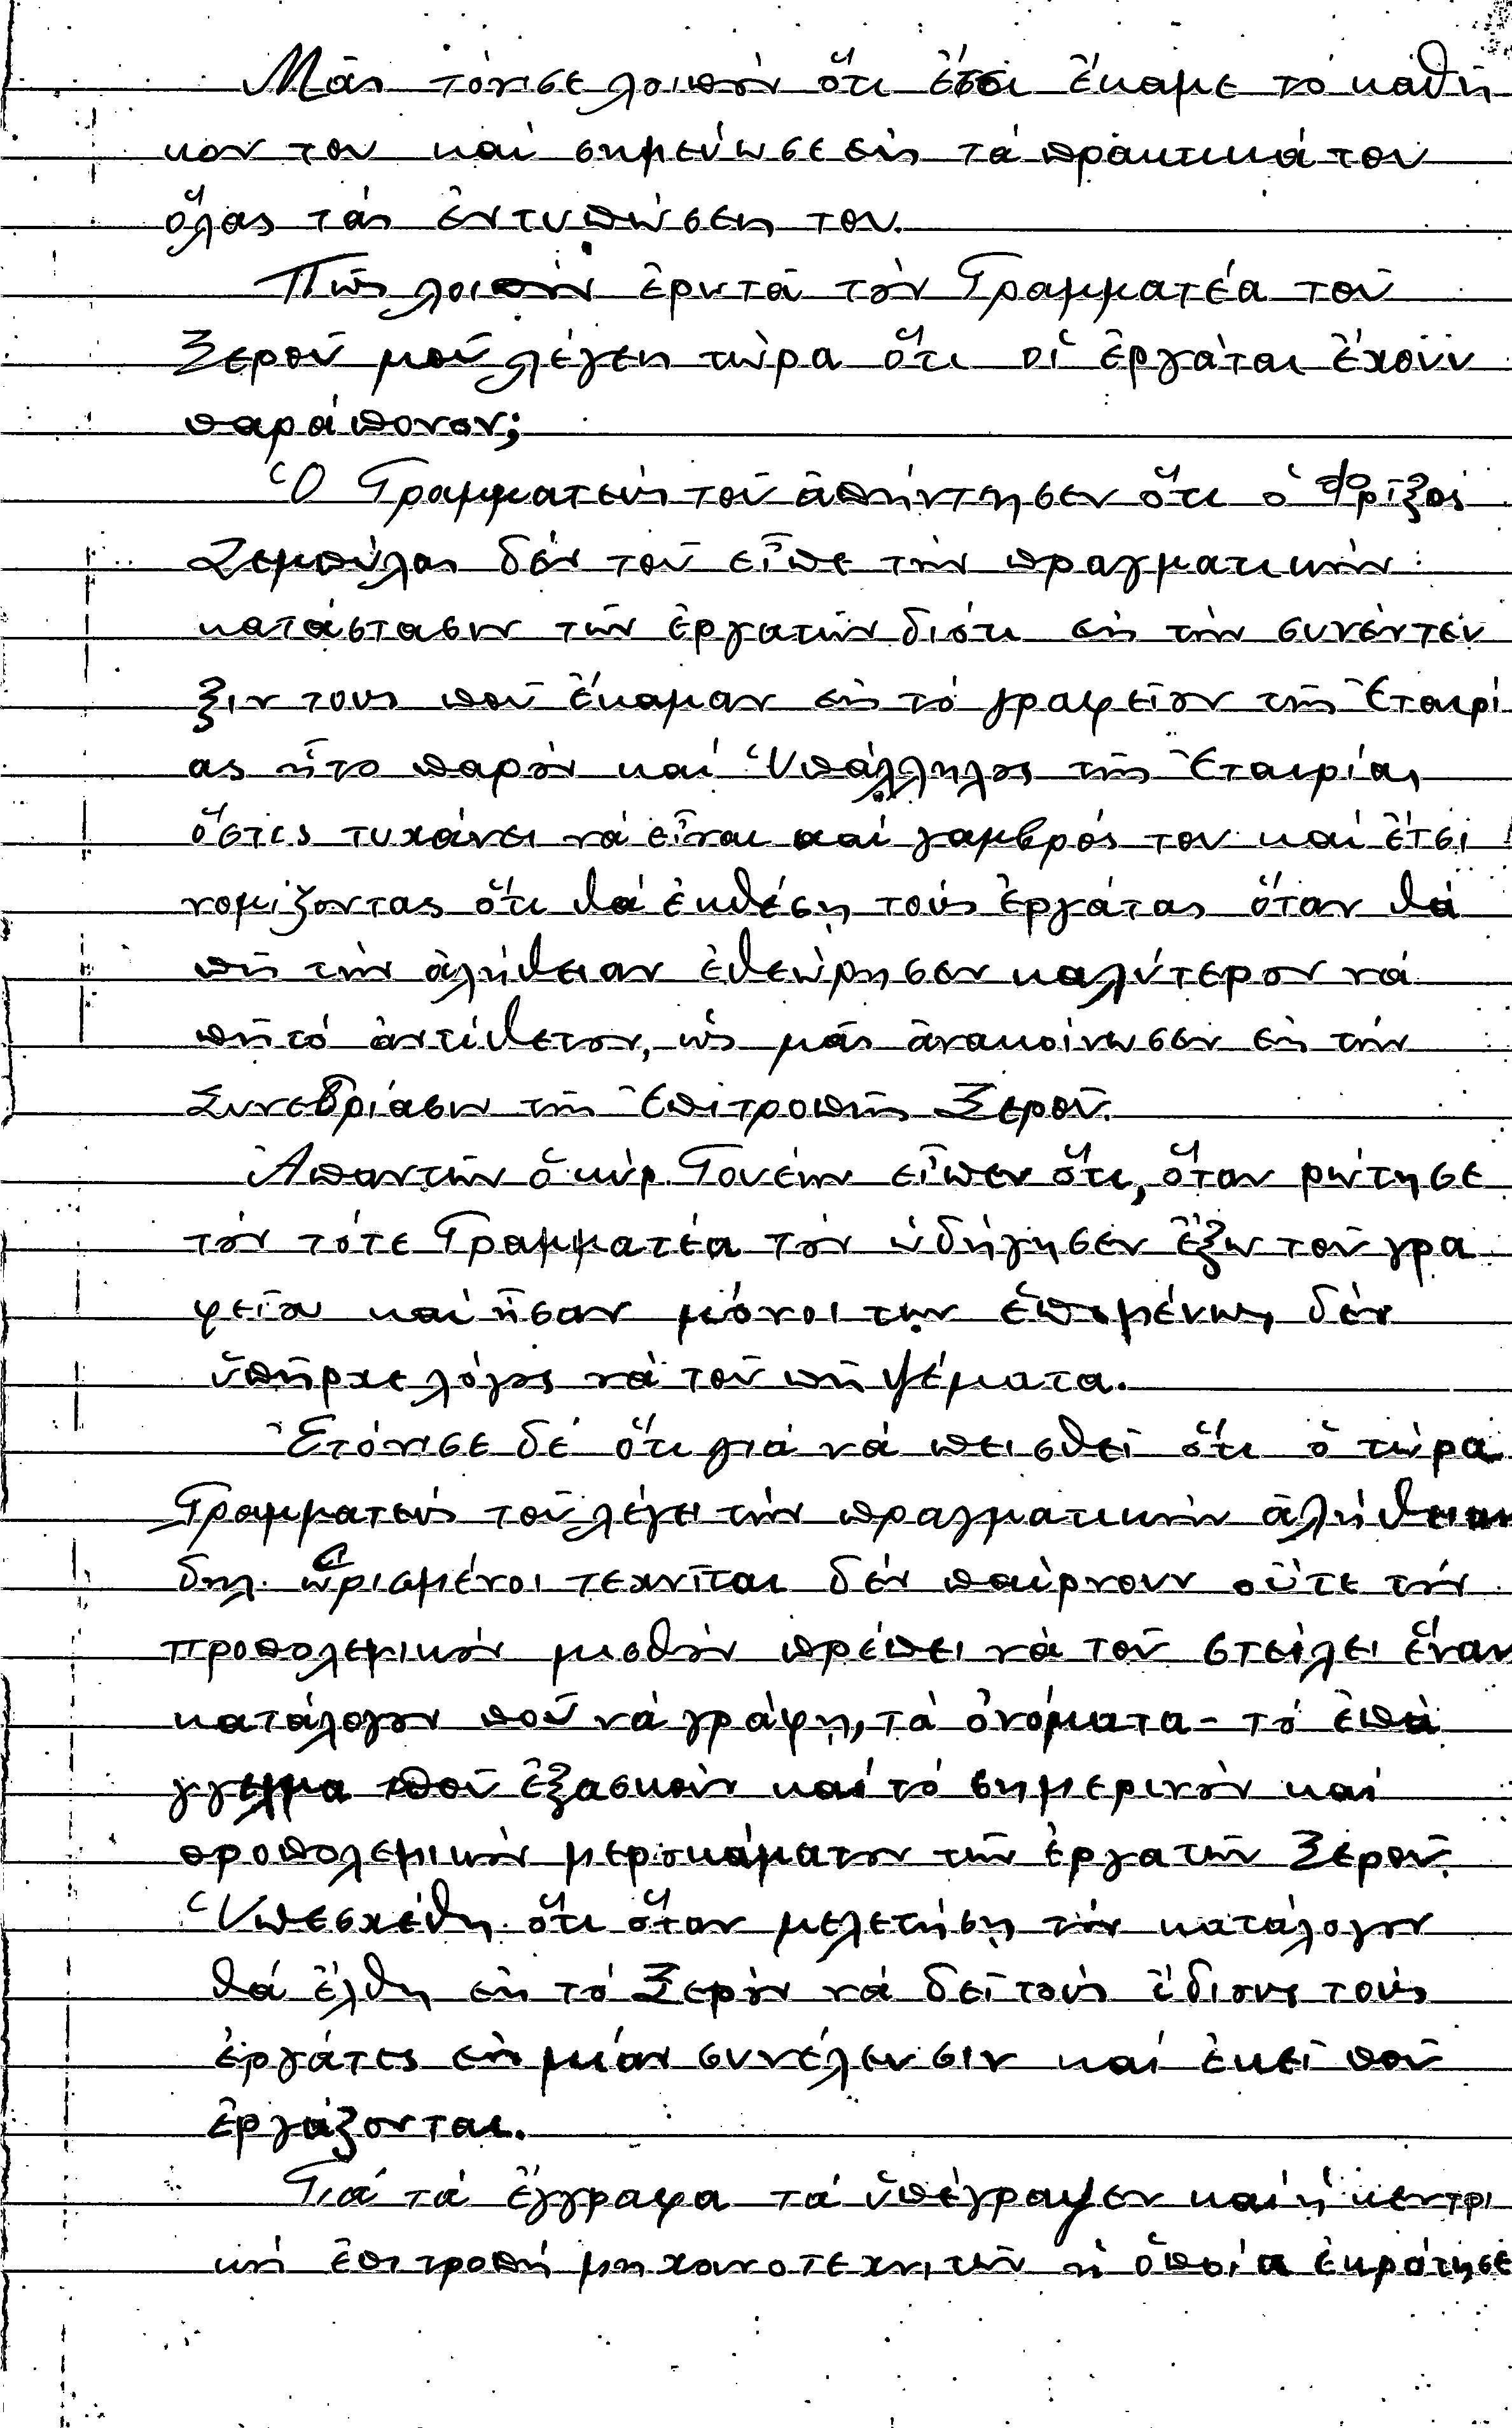 Μᾶς τόνισε λοιπὸν ὅτι ἔτσι ἔκαμε τό καθῆ
κον του καί σημείωσε εἰς τά πρακτικά του
ὅλας τάς ἐντυπώσεις του.
Πῶς λοιπὸν ἐρωτᾶ τὸν Γραμματέα τοῦ
Ξεροῦ μοῦ λέγεις τώρα ὅτι οἱ ἐργάται ἔχουν
παράπονον;
Ὁ Γραμματεύς τοῦ ἀπήντησεν ὅτι ὁ Φρίξος
Ζεμπύλας δέν τοῦ εἶπε τήν πραγματικήν
κατάστασιν τῶν ἐργατῶν διότι εἰς τήν συνέντευ
ξιν τους ποῦ ἔκαμαν εἰς τό γραφεῖον τῆς Ἑταιρί
ας ἦτο παρὸν καί Ὑπάλληλος τῆς Ἑταιρίας
ὅστις τυχάνει νά εἶναι καί γαμβρός του καί ἔτσι
νομίζοντας ὅτι θά ἐκθέση τούς ἐργάτας ὅταν θά
πῆ τήν ἀλήθειαν ἐθεώρησεν καλύτερον νά
πῆ τό ἀντίθετον, ὡς μᾶς ἀνακοίνωσεν εἰς τήν
Συνεδρίασιν τῆς Ἐπιτροπῆς Ξεροῦ.
Ἀπαντῶν ὁ κύρ. Γουέην εἶπεν ὅτι, ὅταν ρώτησε
τόν τότε Γραμματέα τόν ὡδήγησεν ἔξω τοῦ γρα
φείου καί ἦσαν μόνοι των ἑπομένως δέν
ὑπῆρχε λόγος νά τοῦ πῆ ψέματα.
Ἐτόνισε δέ ὅτι γιά νά πεισθεῖ ὅτι ὁ τώρα
Γραμματεύς τοῦ λέγει τήν πραγματικήν ἀλήθειαν
δηλ. ὡρισμένοι τεχνῖται δέν παίρνουν οὔτε τόν
προπολεμικόν μισθόν πρέπει νά τοῦ στείλει ἕναν
κατάλογον ποῦ νά γράφη, τά ὀνόματα - τό ἐπά
γγελμα ποῦ ἐξασκοῦν καί τό σημερινόν καί
προπολεμικόν μεροκάματον τῶν ἐργατῶν Ξεροῦ.
Ὑπεσχέθη ὅτι ὅταν μελετήση τόν κατάλογον
θά ἔλθη εἰς τό Ξερόν νά δεῖ τούς ἴδιους τούς
ἐργάτες εἰς μίαν συνέλευσιν καί ἐκεῖ ποῦ
ἐργάζονται.
Γιά τά ἔγγραφα τά ὑπέγραψεν καί ἡ κεντρι
κή ἐπιτροπή μηχανοτεχνιτῶν ἡ ὁποία ἐκράτησε